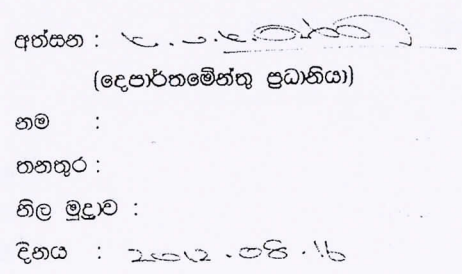 අත්සන :
(දෙපාර්තමේන්තු ප්‍රධානියා)
නම :
තනතුර :
නිල මුද්‍රාව :
දිනය : 2012.08.16